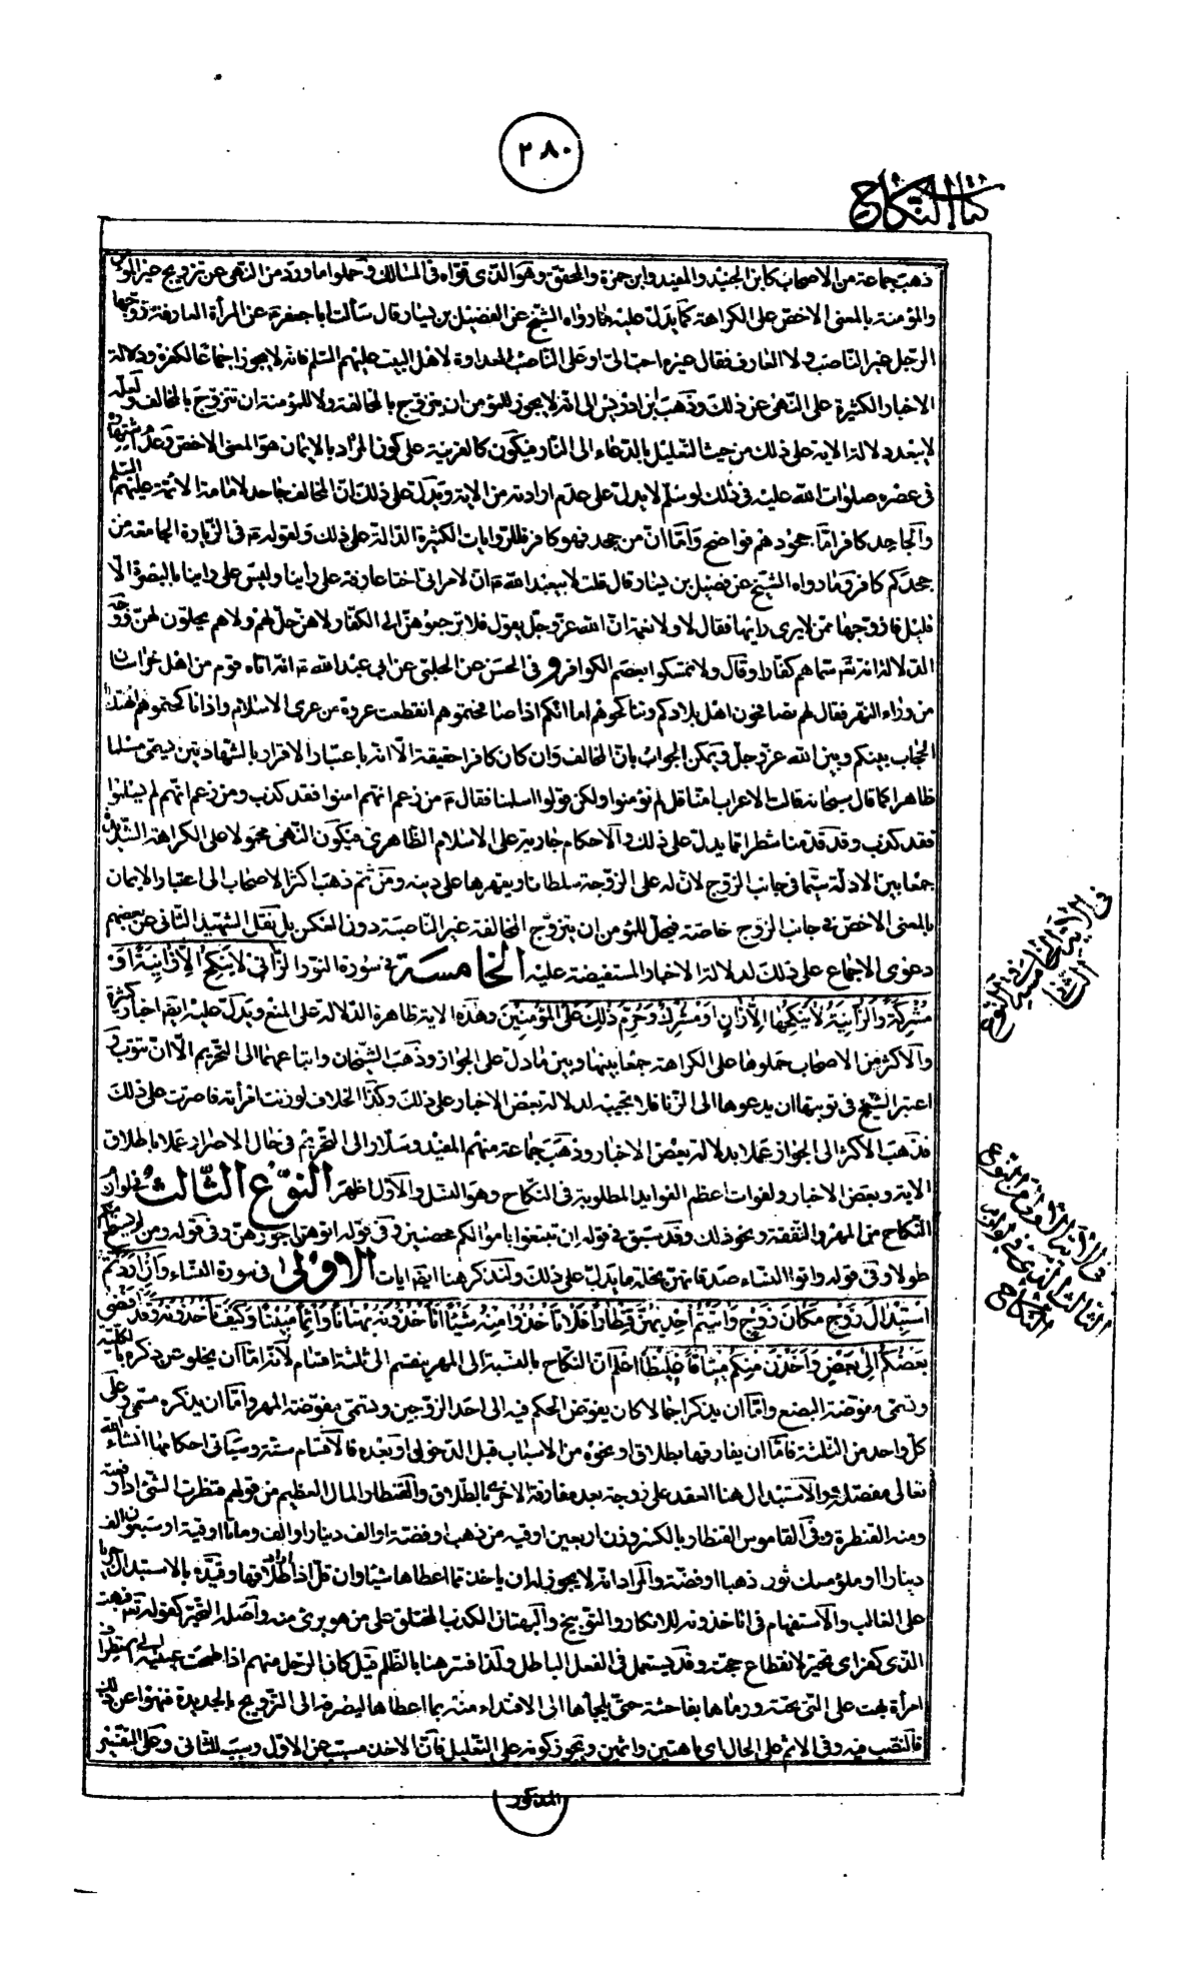 ٢٨٠
كتاب النكاح
ذهب جماعة من الاصحاب كابن الجنيد والمفيد وابن حمزة والمحقق وهو الذي قواه في المسالك وحملوا ما ورد من النهى عن تزويج غير المؤمن
والمؤمنة بالمعنى الاخص على الكراهة كما يدل عليه ما رواه الشيخ عن الفضيل بن يسار قال سألت ابا جعفر ع عن المرأة العارفة هل ازوجها
الرجل غير الناصب ولا العارف فقال غيره احب الى او على الناصب العداوة لاهل البيت عليهم السلم فانه لا يجوز اجماعا لكفره ودلالة
الاخبار الكثيرة على النهى عن ذلك وذهب ابن ادريس الى انه لا يجوز للمؤمن ان يتزوج بالمخالفة ولا للمؤمنة ان تتزوج بالمخالف ولعله
لا يبعد دلالة الاية على ذلك من حيث التعليل بالدعاء الى النار فيكون كالقرينة على كون المراد بالايمان هو المعنى الاخص وعدم اشتهاره
في عصره صلوات الله عليه في ذلك لو سلم لا يدل على عدم ارادته من الاية ويدل على ذلك ان المخالف جاحد لامامة الائمة عليهم السلم
والجاحد كافر اما جحودهم فواضح واما ان من جحد فهو كافر فللروايات الكثيرة الدالة على ذلك ولقوله ع في الزيارة الجامعة من
جحدكم كافر وما رواه الشيخ عن فضيل بن يسار قال قلت لابيعبد الله ع ان لامراتي اختا عارفة على راينا وليس على راينا بالبصرة الا
قليل فازوجها ممن لا يرى رايها فقال لا ولا نعمة ان الله عز وجل يقول فلا ترجعوهن الى الكفار لا هن حل لهم ولا هم يحلون لهن ووجه
الدلالة انه ع سماهم كفارا وقال ولا تمسكوا بعصم الكوافر وفي الحسن عن الحلبي عن ابي عبد الله ع انه اتاه قوم من اهل خراسان
من وراء النهر فقال لهم تصافحون اهل بلادكم وتناكحوهم اما انكم اذا صافحتموهم انقطعت عروة من عرى الاسلام واذا ناكحتموهم انهتك
الحجاب بينكم وبين الله عز وجل ويمكن الجواب بان المخالف وان كان كافرا حقيقة الا انه باعتبار الاقرار بالشهادتين يسمى مسلما
ظاهرا كما قال سبحانه قالت الاعراب امنا قل لم تؤمنوا ولكن قولوا اسلمنا فقال ع من زعم انهم امنوا فقد كذب ومن زعم انهم لم يسلموا
فقد كذب وقد قدمنا شطرا مما يدل على ذلك والاحكام جارية على الاسلام الظاهري فيكون النهى محمولا على الكراهة الشديدة
جمعا بين الادلة سيما في جانب الزوج لان له على الزوجة سلطانا ويقهرها على دينه ومن ثم ذهب اكثر الاصحاب الى اعتبار الايمان
بالمعنى الاخص في جانب الزوج خاصة فيحل للمؤمن ان يتزوج المخالفة غير الناصبة دون العكس بل نقل الشهيد الثاني عن بعضهم
دعوى الاجماع على ذلك لدلالة الاخبار المستفيضة عليه الخامسة في سورة النور الزاني لا ينكح الا زانية او
مشركة والزانية لا ينكحها الا زان او مشرك وحرم ذلك على المؤمنين وهذه الاية ظاهرة الدلالة على المنع ويدل عليه ايضا اخبار كثيرة
والاكثر من الاصحاب حملوها على الكراهة جمعا بينها وبين ما دل على الجواز وذهب الشيخان واتباعهما الى التحريم الا ان تتوب و
اعتبر الشيخ في توبتها ان يدعوها الى الزنا فلا تجيبه لدلالة بعض الاخبار على ذلك وكذا الخلاف لو زنت امرأته فاصرت على ذلك
فذهب الاكثر الى الجواز عملا بدلالة بعض الاخبار وذهب جماعة منهم المفيد وسلار الى التحريم في حال الاصرار عملا باطلاق
الاية وبعض الاخبار ولفوات اعظم الفوايد المطلوبة في النكاح وهو النسل والاول اظهر النوع الثالث في لوازم
النكاح من المهر والنفقة ونحو ذلك وقد سبق في قوله ان تبتغوا باموالكم محصنين وفي قوله اتوهن اجورهن وفي قوله ومن لم يستطع منكم
طولا وفي قوله واتوا النساء صدقاتهن نحلة ما يدل على ذلك ولنذكر هنا ايضا ايات الاولى في سورة النساء وان اردتم
استبدال زوج مكان زوج واتيتم احديهن قنطارا فلا تاخذوا منه شيئا اتاخذونه بهتانا واثما مبينا وكيف تاخذونه وقد افضى
بعضكم الى بعض واخذن منكم ميثاقا غليظا اعلم ان النكاح بالنسبة الى المهر ينقسم الى ثلثة اقسام لانه اما ان يخلو عن ذكره بالكلية
وتسمى مفوضة البضع واما ان يذكر اجمالا كان يفوض الحكم فيه الى احد الزوجين وتسمى مفوضة المهر واما ان يذكره مسمى وعلى
كل واحد من الثلثة فاما ان يفارقها بطلاق او نحوه من الاسباب قبل الدخول او بعده فالاقسام ستة وسياتي احكامها انشاء الله
تعالى مفصلة والاستبدال هنا العقد على زوجة بعد مفارقة الاخرى بالطلاق والقنطار المال العظيم من قولهم قنطرت الشئ اذا رفعته
ومنه القنطرة وفي القاموس القنطار بالكسر وزن اربعين اوقية من ذهب او فضة او الف دينار او الف ومائتا اوقية او سبعون الف
دينارا او ملؤ مسك ثور ذهبا او فضة والمراد انه لا يجوز له ان ياخذ مما اعطاها شيئا وان قل اذا طلقها وقيده بالاستبدال جريا
على الغالب والاستفهام في اتاخذونه للانكار والتوبيخ والبهتان الكذب المختلق على من هو برئ منه واصله التحير كقوله تع فبهت
الذي كفر اى تحير لانقطاع حجته وقد يستعمل في الفعل الباطل ولذا فسر هنا بالظلم قيل كان الرجل منهم اذا طمحت عينه الى استطراف
امرأة بهت على التي تحته ورماها بفاحشة حتى يلجأها الى الافتداء منه بما اعطاها ليصرفه الى التزويج بالجديدة فنهوا عن ذلك
فالنصب فيه وفي الاثم على الحال اى باهتين واثمين ويجوز كونه على التعليل فان الاخذ مسبب عن الاول وسبب للثاني وعلى التفسير
المذكور
في الاية الخامسة في النوع الثاني
في الاية الاولى من النوع الثالث الذي في لوازم النكاح